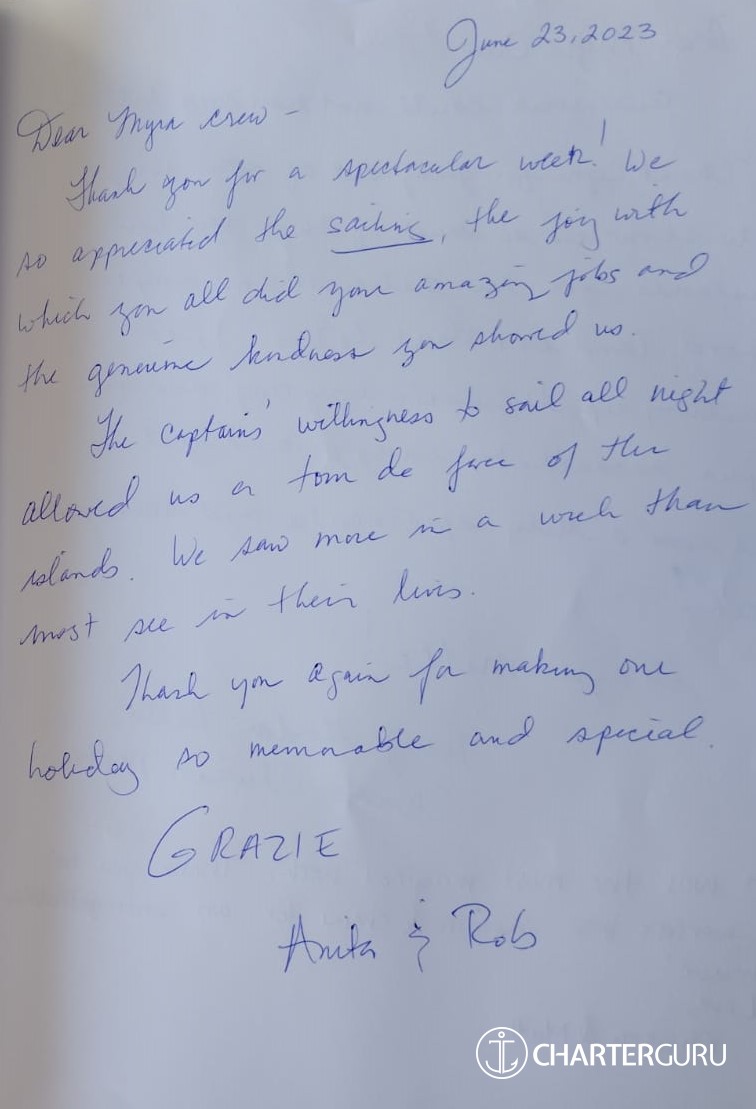 June 23, 2023
Dear Myra crew -
Thank you for a spectacular week! We
so appreciated the sailing, the joy with
which you all did your amazing jobs and
the genuine kindness you showed us.
The captains' willingness to sail all night
allowed us a tour de force of the
islands. We saw more in a week than
most see in their lives.
Thank you again for making our
holiday so memorable and special.
GRAZIE
Anita & Rob
CHARTERGURU